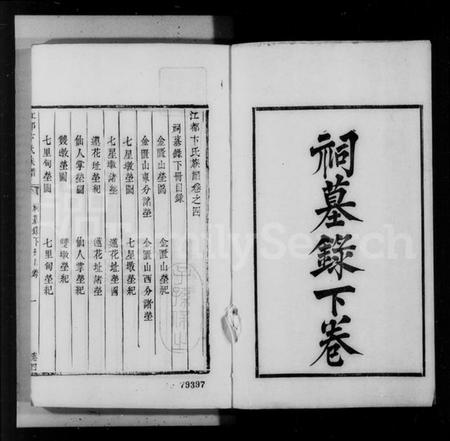 祠墓錄下卷
江都卞氏族譜卷之四
祠墓錄下冊目錄
金匱山塋圖 金匱山塋祀
金匱山東分諸塋 金匱山西分諸塋
七星墩塋圖 七星墩塋祀
七星墩諸塋 蓮花址塋圖
蓮花址塋祀 蓮花址諸塋
仙人掌塋圖 仙人掌塋祀
雙墩塋圖 雙墩塋祀
七里甸塋圖 七里甸塋祀
江都卞氏族譜 祠墓錄下目錄 一 卷四
79397
FamilySearch